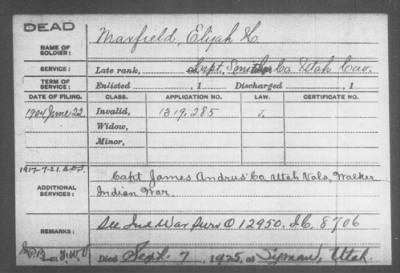 DEAD
NAME OF SOLDIER: Maxfield, Elijah H.
SERVICE: Late rank, Capt. Smith's Co Utah Cav.
TERM OF SERVICE: Enlisted , 1 Discharged , 1
DATE OF FILING. CLASS. APPLICATION NO. LAW. CERTIFICATE NO.
1904 June 22 Invalid, 1319.285
Widow,
Minor,
1917-7-21
ADDITIONAL SERVICES: Capt James Andrus' Co Utah Vols, Walker
Indian War.
REMARKS: See Ind War Surv O 12950. I.C. 8706
Died Sept. 7, 1925, at Utah.